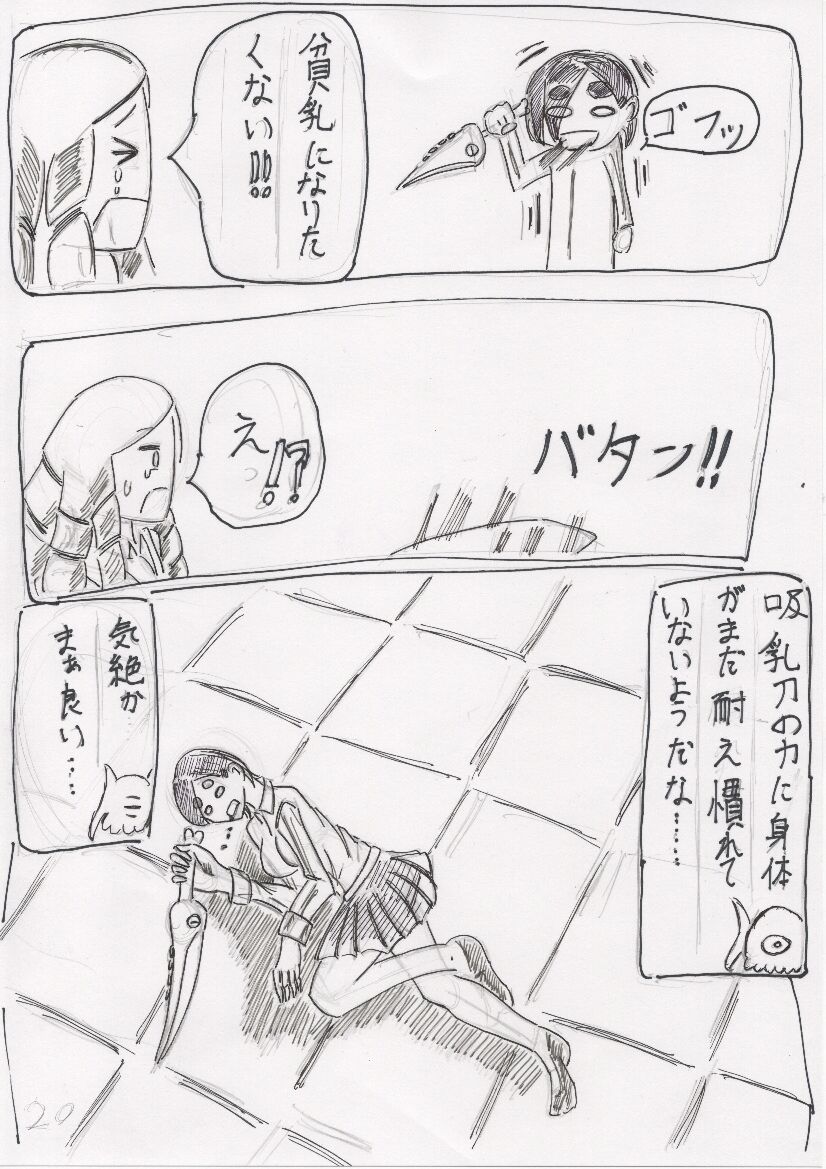 ゴフッ
貧乳になりた
くない!!
バタン!!
え!?
吸乳刀の力に身体
がまだ耐え慣れて
いないようだな……
気絶か…
まぁ良い……
20